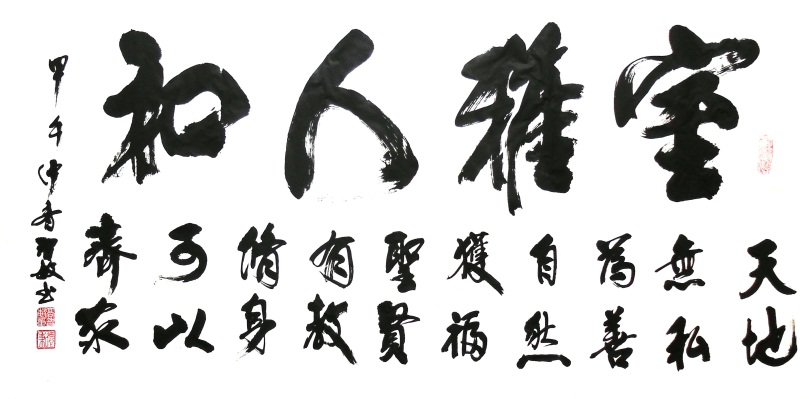 室雅人和
天地
無私
為善
自然
獲福
聖賢
有教
脩身
可以
齊家
甲午仲春敏书